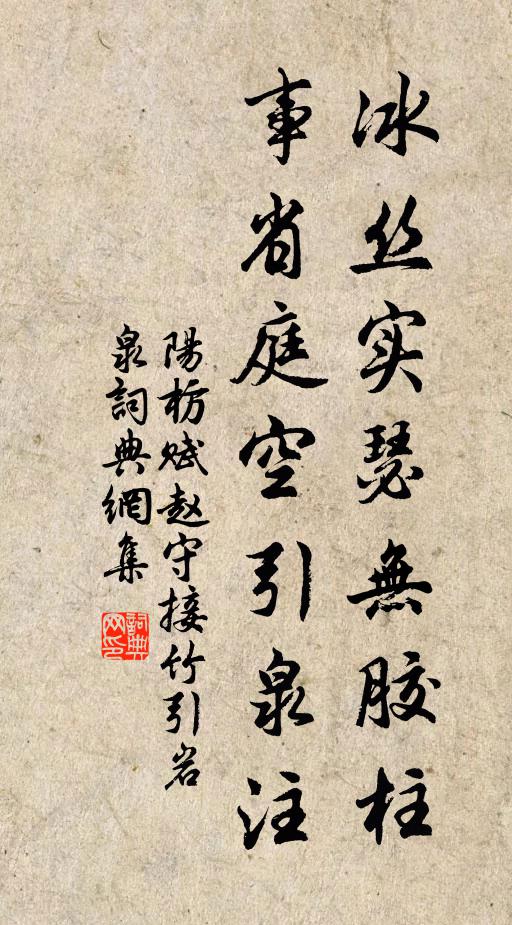 冰丝实瑟無胶柱
事省庭空引泉注
陽枋赋赵守接竹引岩
泉詞典網集
詞典
网印